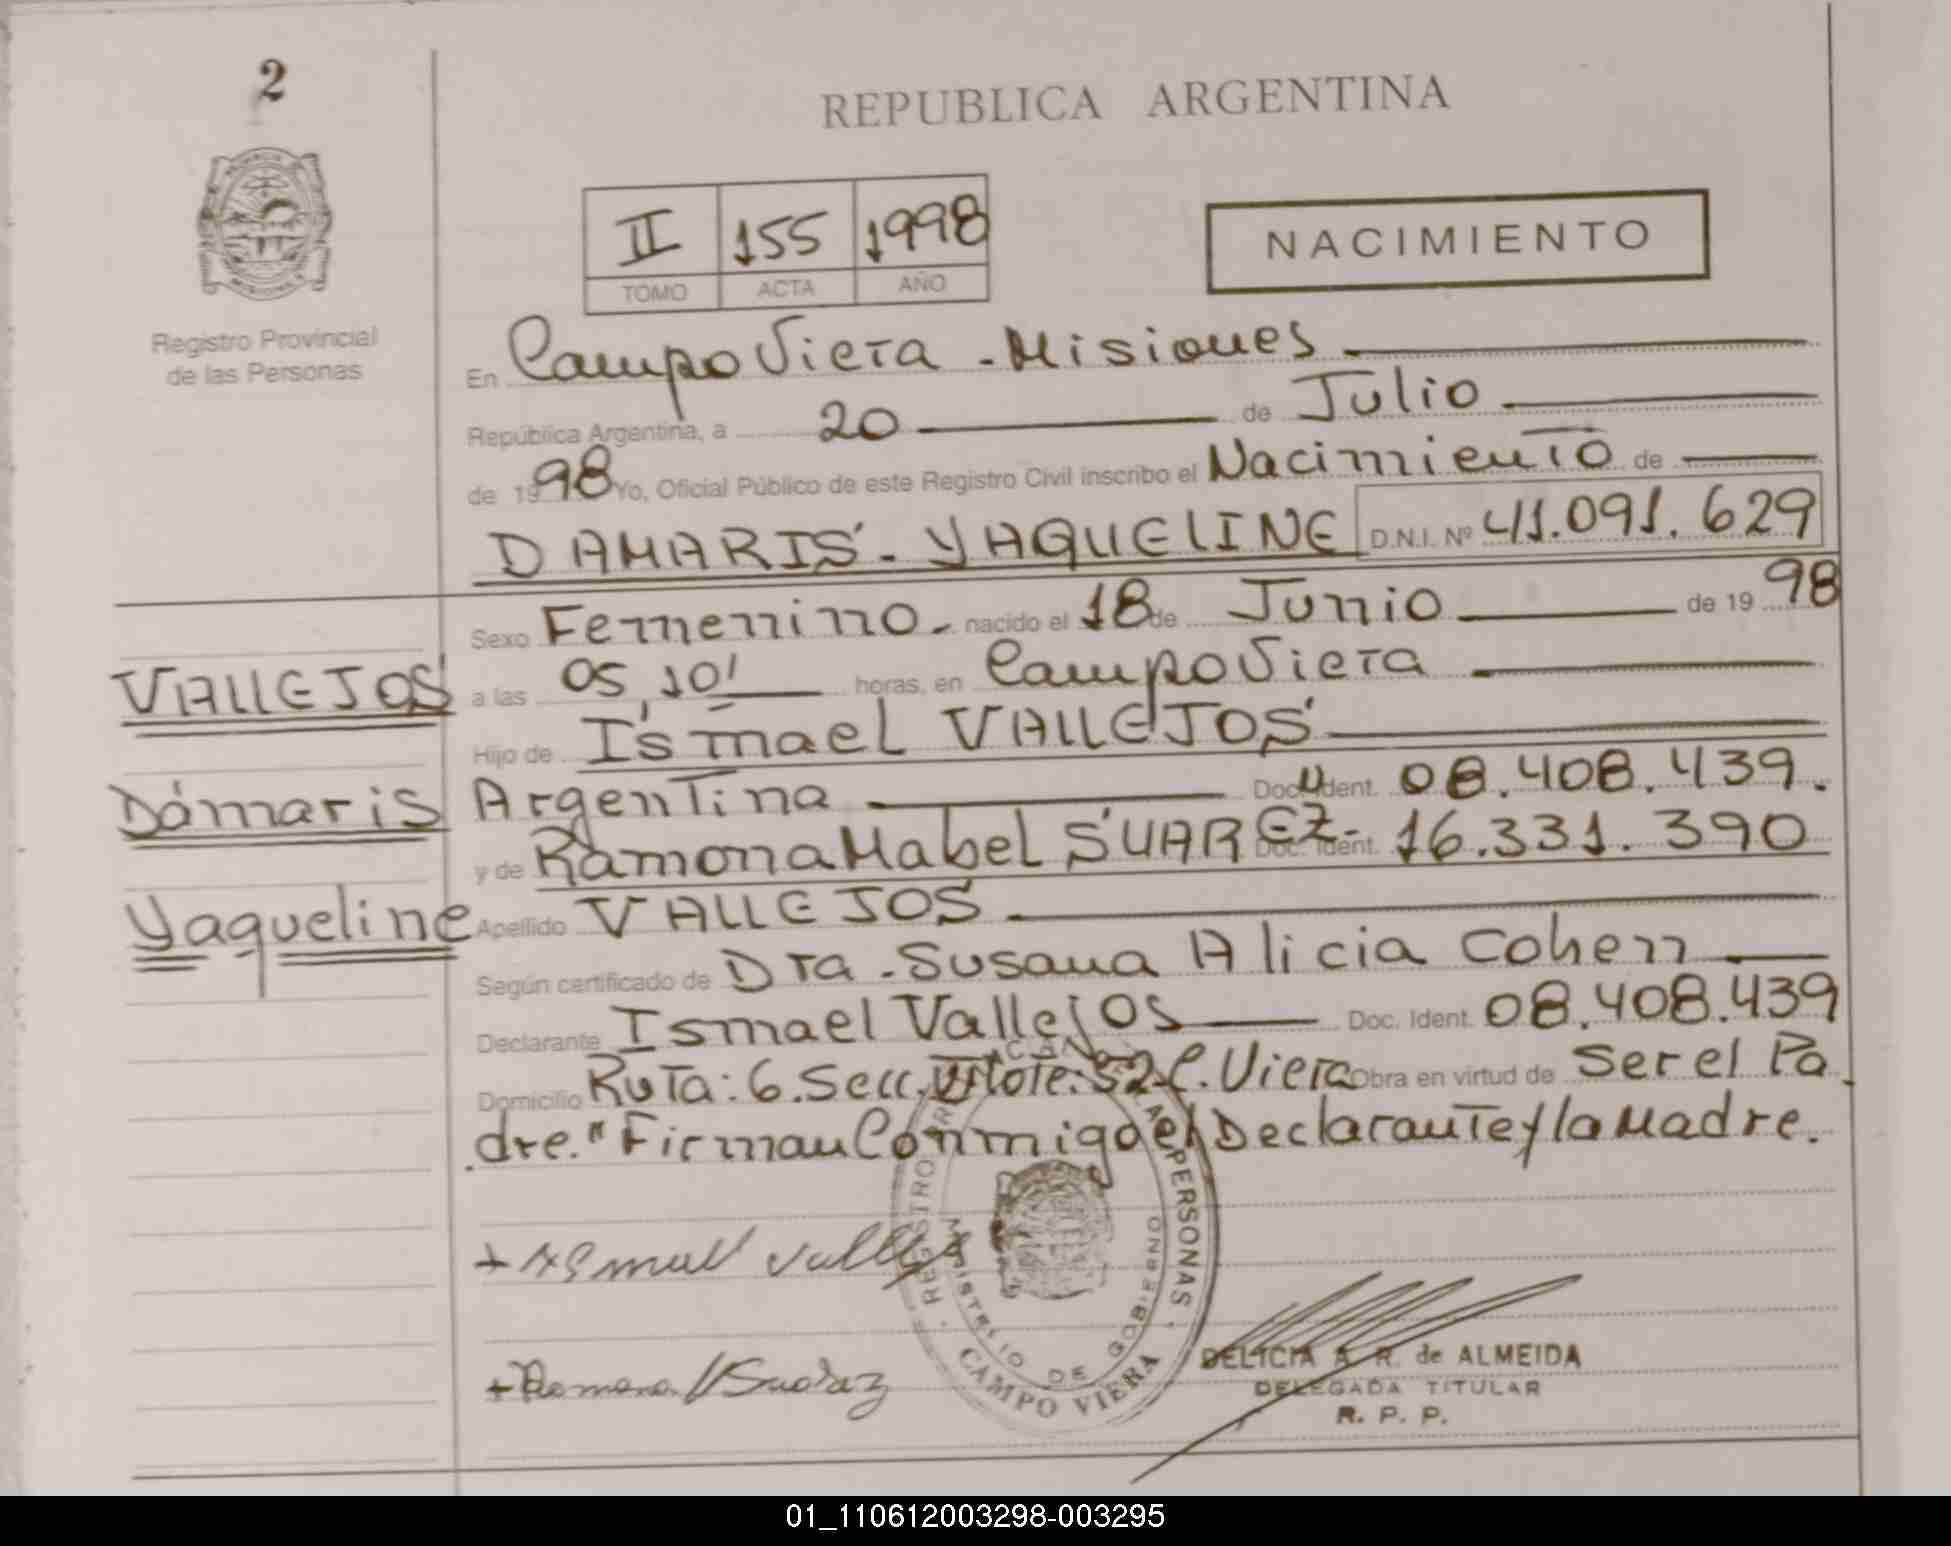 2
REPUBLICA ARGENTINA
II 155 1998
TOMO ACTA AÑO
NACIMIENTO
Registro Provincial
de las Personas
En Campo Viera - Misiones
República Argentina, a 20 de Julio
de 1998 Yo, Oficial Público de este Registro Civil inscribo el Nacimiento de
DAMARIS - YAQUELINE D.N.I. Nº 41.091.629
Sexo Femenino - nacido el 18 de Junio de 1998
VALLEJOS
a las 05,10' horas, en Campo Viera
Hijo de Ismael VALLEJOS
Dámaris
Argentina Doc. Ident. 08.408.439.
y de Ramona Mabel SUAREZ - Doc. Ident. 16.331.390
Yaqueline
Apellido VALLEJOS
Según certificado de Dra. Susana Alicia Cohen
Declarante Ismael Vallejos Doc. Ident. 08.408.439
Domicilio Ruta: 6. Secc. Lote: 52 C. Viera Obra en virtud de Ser el Pa
dre." Firman Conmigo el Declarante y la Madre.
+ Ismael Vallejos
+ Ramona M Suarez
REGISTRO PERSONAS
MINISTERIO DE GOBIERNO
CAMPO VIERA
DELICIA A. R. de ALMEIDA
DELEGADA TITULAR
R. P. P.
01_110612003298-003295